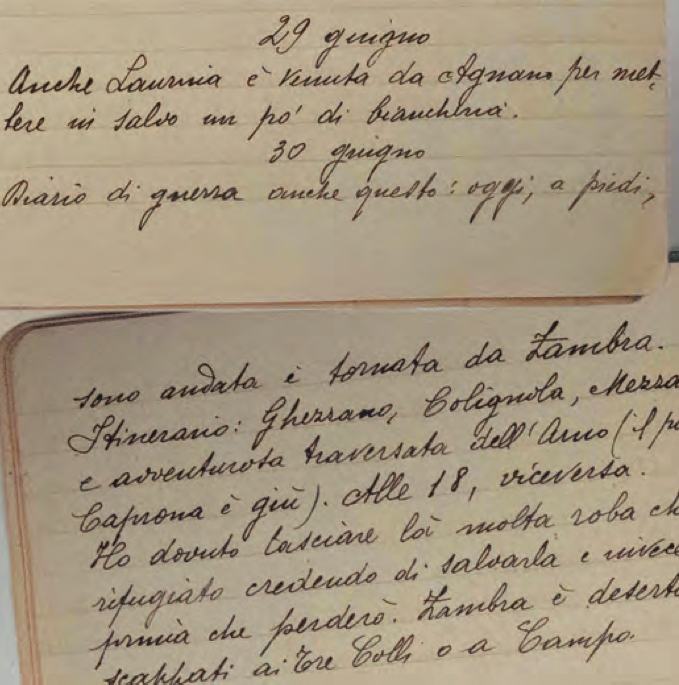 29 giugno
Anche Laurina è venuta da Agnano per met,
tere in salvo un po' di biancheria.
30 giugno
Diario di guerra anche questo: oggi, a piedi,
sono andata e tornata da Zambra.
Itinerario: Ghezzano, Colignola, Mezza
e avventurosa traversata dell'Arno (il po
Caprona è giù). Alle 18, viceversa.
Ho dovuto lasciare là molta roba ch
rifugiato credendo di salvarla e invece
prima che perderò. Zambra è deserta
scappati ai Tre Colli o a Campo.